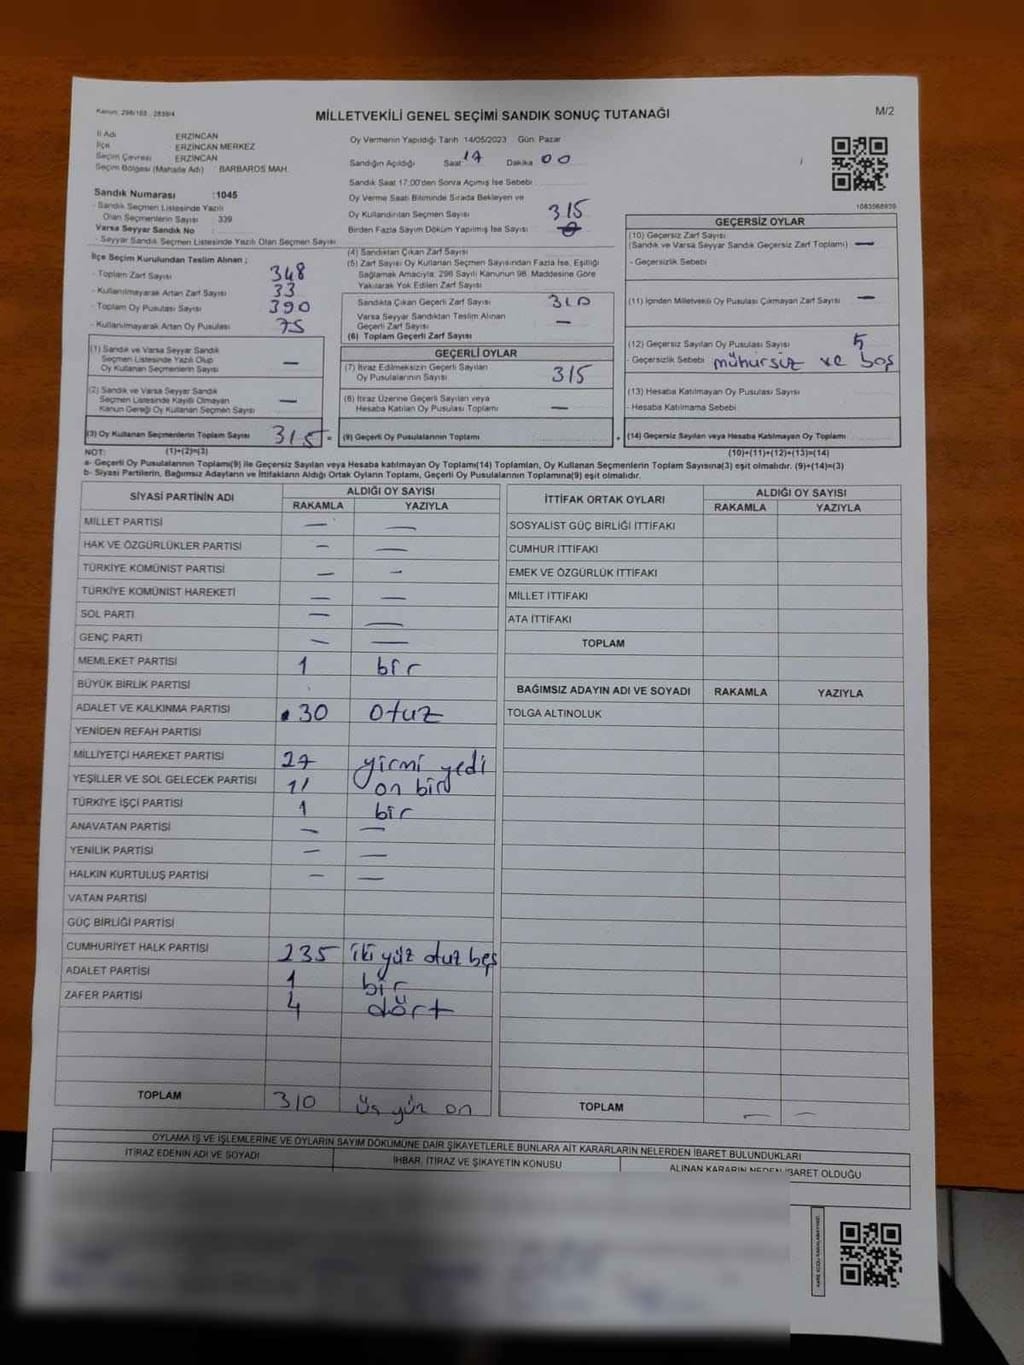 Kanun: 298/105 , 2839/4
MİLLETVEKİLİ GENEL SEÇİMİ SANDIK SONUÇ TUTANAĞI
M/2
İl Adı ERZİNCAN
İlçe ERZİNCAN MERKEZ
Seçim Çevresi ERZİNCAN
Seçim Bölgesi (Mahalle Adı) BARBAROS MAH.
Sandık Numarası :1045
- Sandık Seçmen Listesinde Yazılı
Olan Seçmenlerin Sayısı : 339
Varsa Seyyar Sandık No :
- Seyyar Sandık Seçmen Listesinde Yazılı Olan Seçmen Sayısı
İlçe Seçim Kurulundan Teslim Alınan ;
- Toplam Zarf Sayısı 348
- Kullanılmayarak Artan Zarf Sayısı 33
- Toplam Oy Pusulası Sayısı 390
- Kullanılmayarak Artan Oy Pusulası 75
(1) Sandık ve Varsa Seyyar Sandık
Seçmen Listesinde Yazılı Olup
Oy Kullanan Seçmenlerin Sayısı —
(2) Sandık ve Varsa Seyyar Sandık
Seçmen Listesinde Kayıtlı Olmayan
Kanun Gereği Oy Kullanan Seçmen Sayısı —
(3) Oy Kullanan Seçmenlerin Toplam Sayısı 315
Oy Vermenin Yapıldığı Tarih 14/05/2023 Gün Pazar
Sandığın Açıldığı Saat 17 Dakika 00
Sandık Saat 17:00'den Sonra Açımış İse Sebebi
Oy Verme Saati Bitiminde Sırada Bekleyen ve
Oy Kullandırılan Seçmen Sayısı 315
Birden Fazla Sayım Döküm Yapılmış İse Sayısı
(4) Sandıktan Çıkan Zarf Sayısı
(5) Zarf Sayısı Oy Kullanan Seçmen Sayısından Fazla İse, Eşitliği
Sağlamak Amacıyla; 298 Sayılı Kanunun 98. Maddesine Göre
Yakılarak Yok Edilen Zarf Sayısı
Sandıkta Çıkan Geçerli Zarf Sayısı 310
Varsa Seyyar Sandıktan Teslim Alınan
Geçerli Zarf Sayısı —
(6) Toplam Geçerli Zarf Sayısı
GEÇERLİ OYLAR
(7) İtiraz Edilmeksizin Geçerli Sayılan
Oy Pusulalarının Sayısı 315
(8) İtiraz Üzerine Geçerli Sayılan veya
Hesaba Katılan Oy Pusulası Toplamı —
= (9) Geçerli Oy Pusulalarının Toplamı
1083968939
GEÇERSİZ OYLAR
(10) Geçersiz Zarf Sayısı
(Sandık ve Varsa Seyyar Sandık Geçersiz Zarf Toplamı) —
- Geçersizlik Sebebi
(11) İçinden Milletvekili Oy Pusulası Çıkmayan Zarf Sayısı —
(12) Geçersiz Sayılan Oy Pusulası Sayısı 5
Geçersizlik Sebebi mühürsiz ve boş
(13) Hesaba Katılmayan Oy Pusulası Sayısı
- Hesaba Katılmama Sebebi
+ (14) Geçersiz Sayılan veya Hesaba Katılmayan Oy Toplamı
NOT: (1)+(2)=(3)
(10)+(11)+(12)+(13)=(14)
a- Geçerli Oy Pusulalarının Toplamı(9) ile Geçersiz Sayılan veya Hesaba katılmayan Oy Toplamı(14) Toplamları, Oy Kullanan Seçmenlerin Toplam Sayısına(3) eşit olmalıdır. (9)+(14)=(3)
b- Siyasi Partilerin, Bağımsız Adayların ve İttifakların Aldığı Ortak Oyların Toplamı, Geçerli Oy Pusulalarının Toplamına(9) eşit olmalıdır.
SİYASİ PARTİNİN ADI ALDIĞI OY SAYISI
RAKAMLA YAZIYLA
MİLLET PARTİSİ — —
HAK VE ÖZGÜRLÜKLER PARTİSİ — —
TÜRKİYE KOMÜNİST PARTİSİ — —
TÜRKİYE KOMÜNİST HAREKETİ — —
SOL PARTİ — —
GENÇ PARTİ — —
MEMLEKET PARTİSİ 1 bir
BÜYÜK BİRLİK PARTİSİ
ADALET VE KALKINMA PARTİSİ 30 otuz
YENİDEN REFAH PARTİSİ
MİLLİYETÇİ HAREKET PARTİSİ 27 yirmi yedi
YEŞİLLER VE SOL GELECEK PARTİSİ 11 on bir
TÜRKİYE İŞÇİ PARTİSİ 1 bir
ANAVATAN PARTİSİ — —
YENİLİK PARTİSİ — —
HALKIN KURTULUŞ PARTİSİ — —
VATAN PARTİSİ
GÜÇ BİRLİĞİ PARTİSİ
CUMHURİYET HALK PARTİSİ 235 iki yüz otuz beş
ADALET PARTİSİ 1 bir
ZAFER PARTİSİ 4 dört
TOPLAM 310 üç yüz on
İTTİFAK ORTAK OYLARI ALDIĞI OY SAYISI
RAKAMLA YAZIYLA
SOSYALİST GÜÇ BİRLİĞİ İTTİFAKI
CUMHUR İTTİFAKI
EMEK VE ÖZGÜRLÜK İTTİFAKI
MİLLET İTTİFAKI
ATA İTTİFAKI
TOPLAM
BAĞIMSIZ ADAYIN ADI VE SOYADI RAKAMLA YAZIYLA
TOLGA ALTINOLUK
TOPLAM — —
OYLAMA İŞ VE İŞLEMLERİNE VE OYLARIN SAYIM DÖKÜMÜNE DAİR ŞİKAYETLERLE BUNLARA AİT KARARLARIN NELERDEN İBARET BULUNDUKLARI
İTİRAZ EDENİN ADI VE SOYADI
İHBAR, İTİRAZ VE ŞİKAYETİN KONUSU
ALINAN KARARIN NEDEN İBARET OLDUĞU